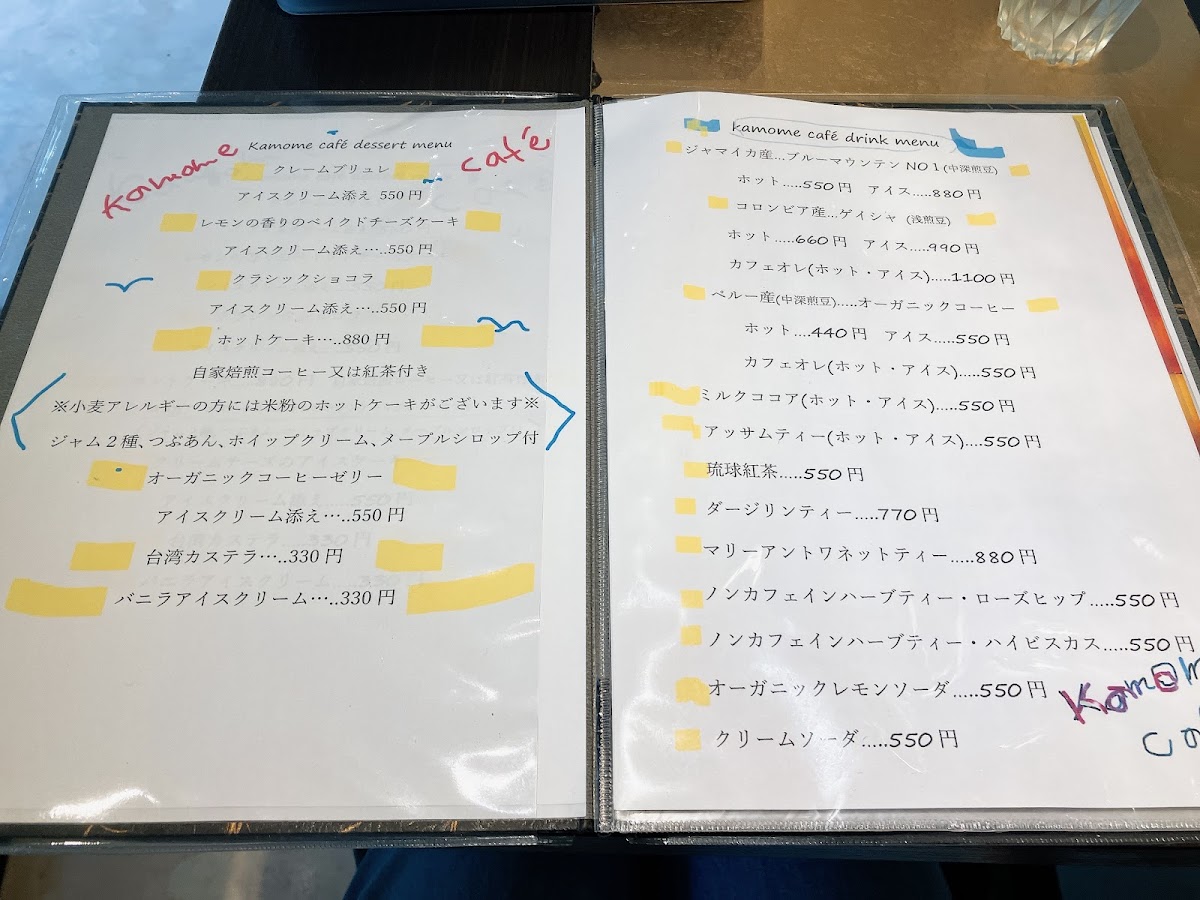 Kamome café
Kamome café dessert menu
クレームブリュレ
アイスクリーム添え 550 円
レモンの香りのベイクドチーズケーキ
アイスクリーム添え…..550 円
クラシックショコラ
アイスクリーム添え…..550 円
ホットケーキ…..880 円
自家焙煎コーヒー又は紅茶付き
※小麦アレルギーの方には米粉のホットケーキがございます※
ジャム２種、つぶあん、ホイップクリーム、メープルシロップ付
オーガニックコーヒーゼリー
アイスクリーム添え…..550 円
台湾カステラ…..330 円
バニラアイスクリーム…..330 円
kamome café drink menu
ジャマイカ産…ブルーマウンテン NO１(中深煎豆)
ホット.....550 円 アイス.....880 円
コロンビア産…ゲイシャ (浅煎豆)
ホット.....660 円 アイス.....990 円
カフェオレ(ホット・アイス).....1100 円
ペルー産(中深煎豆).....オーガニックコーヒー
ホット....440 円 アイス.....550 円
カフェオレ(ホット・アイス).....550 円
ミルクココア(ホット・アイス).....550 円
アッサムティー(ホット・アイス).....550 円
琉球紅茶.....550 円
ダージリンティー.....770 円
マリーアントワネットティー.....880 円
ノンカフェインハーブティー・ローズヒップ.....550 円
ノンカフェインハーブティー・ハイビスカス.....550 円
オーガニックレモンソーダ.....550 円
クリームソーダ.....550 円
Kamom
ca